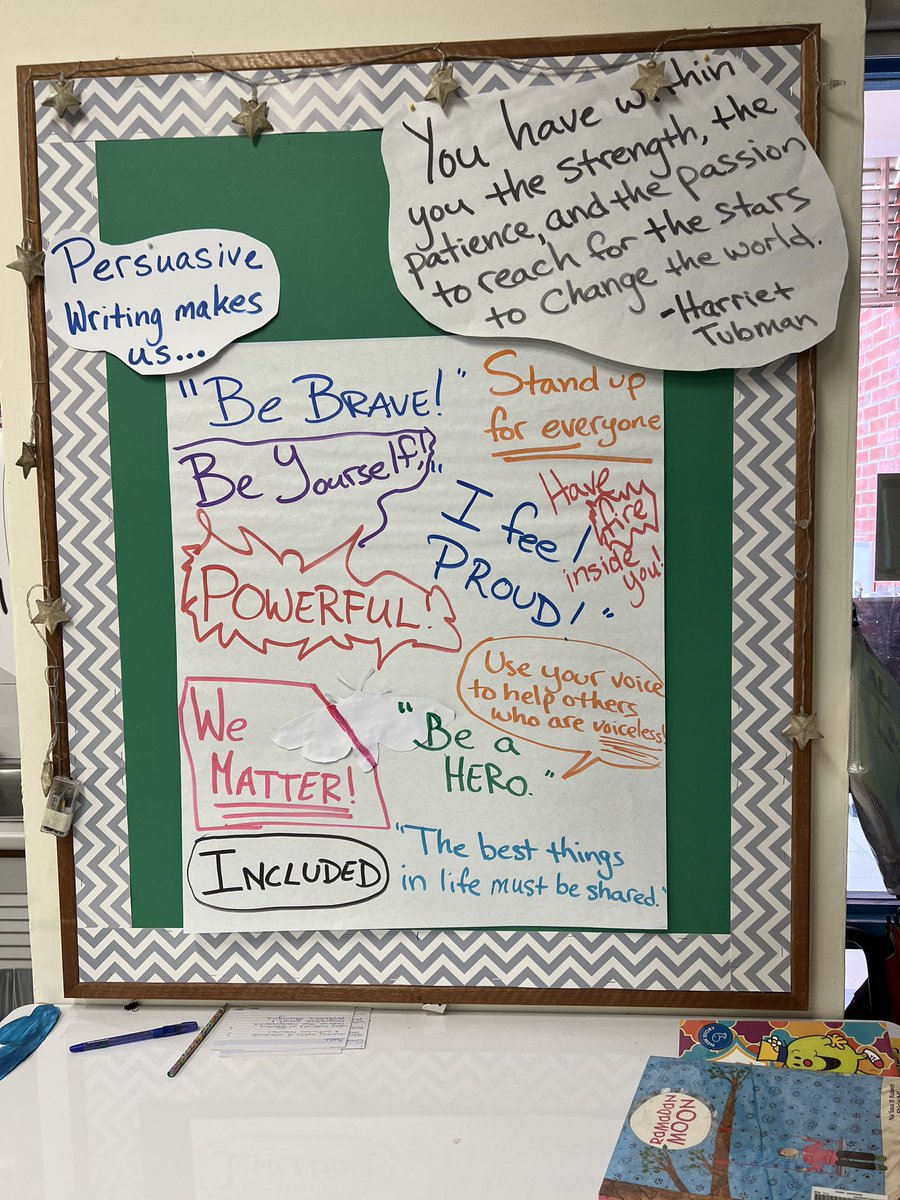 You have within
you the strength, the
patience, and the passion
to reach for the stars
to change the world.
-Harriet
Tubman
Persuasive
Writing makes
us...
"BE BRAVE!"
Stand up
for everyone
Be Yourself!"
I feel
PROUD!"
Have
fire
inside
you!
POWERFUL!
Use your voice
to help others
who are voiceless!
We
MATTER!
"Be a
HERO."
INCLUDED
"The best things
in life must be shared."
RAMADAN
MOON